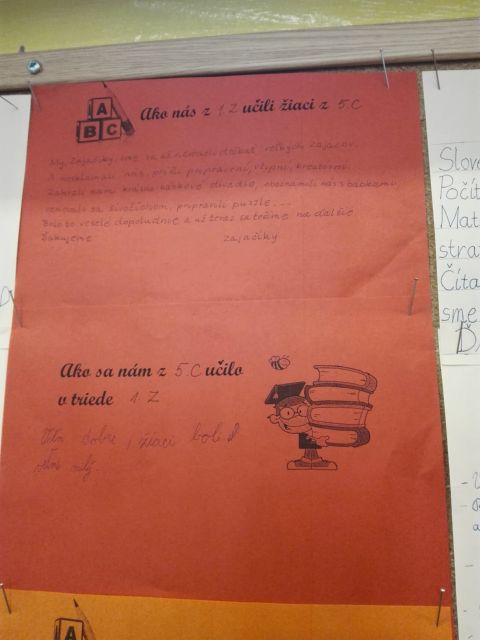 Ako nás z 1.Z učili žiaci z 5.C
A
B C
My, Zajačiky, sme sa už nevedeli dočkať veľkých Zajacov.
A nesklamali nás, prišli pripravení, vtipní, kreatívni.
Zahrali nám krásne bábkové divadlo, oboznámili nás s bábkami
so životom, pripravili puzzle...
Bolo to veselé dopoludnie a už teraz sa tešíme na ďalšie
Ďakujeme Zajačiky
Ako sa nám z 5.C učilo
v triede 1.Z
Veľmi dobre, žiaci boli
veľmi milý.
Slove
Počít
Mat
stra
Číta
sme
Ď
A